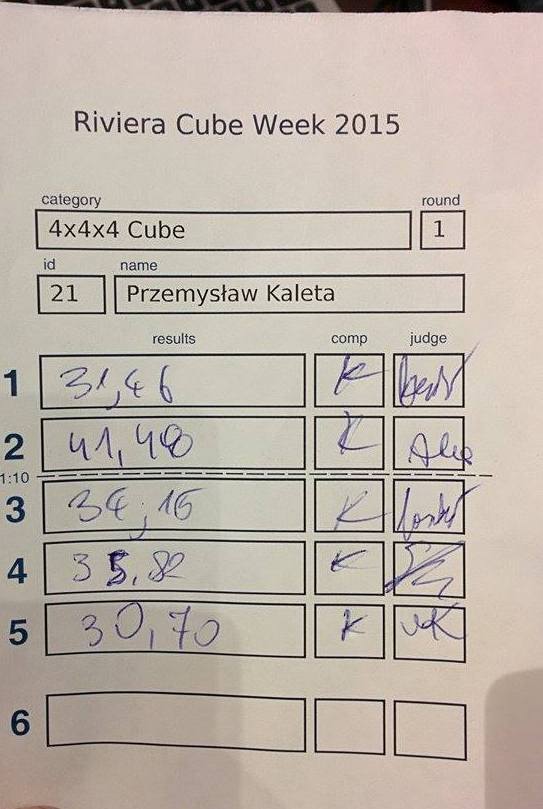 Riviera Cube Week 2015
category round
4x4x4 Cube 1
id name
21 Przemysław Kaleta
results comp judge
1 31,46 K
2 41,40 K
1:10
3 34,16 K
4 35,82 K
5 30,70 K
6